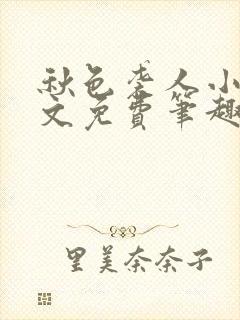 秋色袭人小
文免费笔趣
里美奈奈子